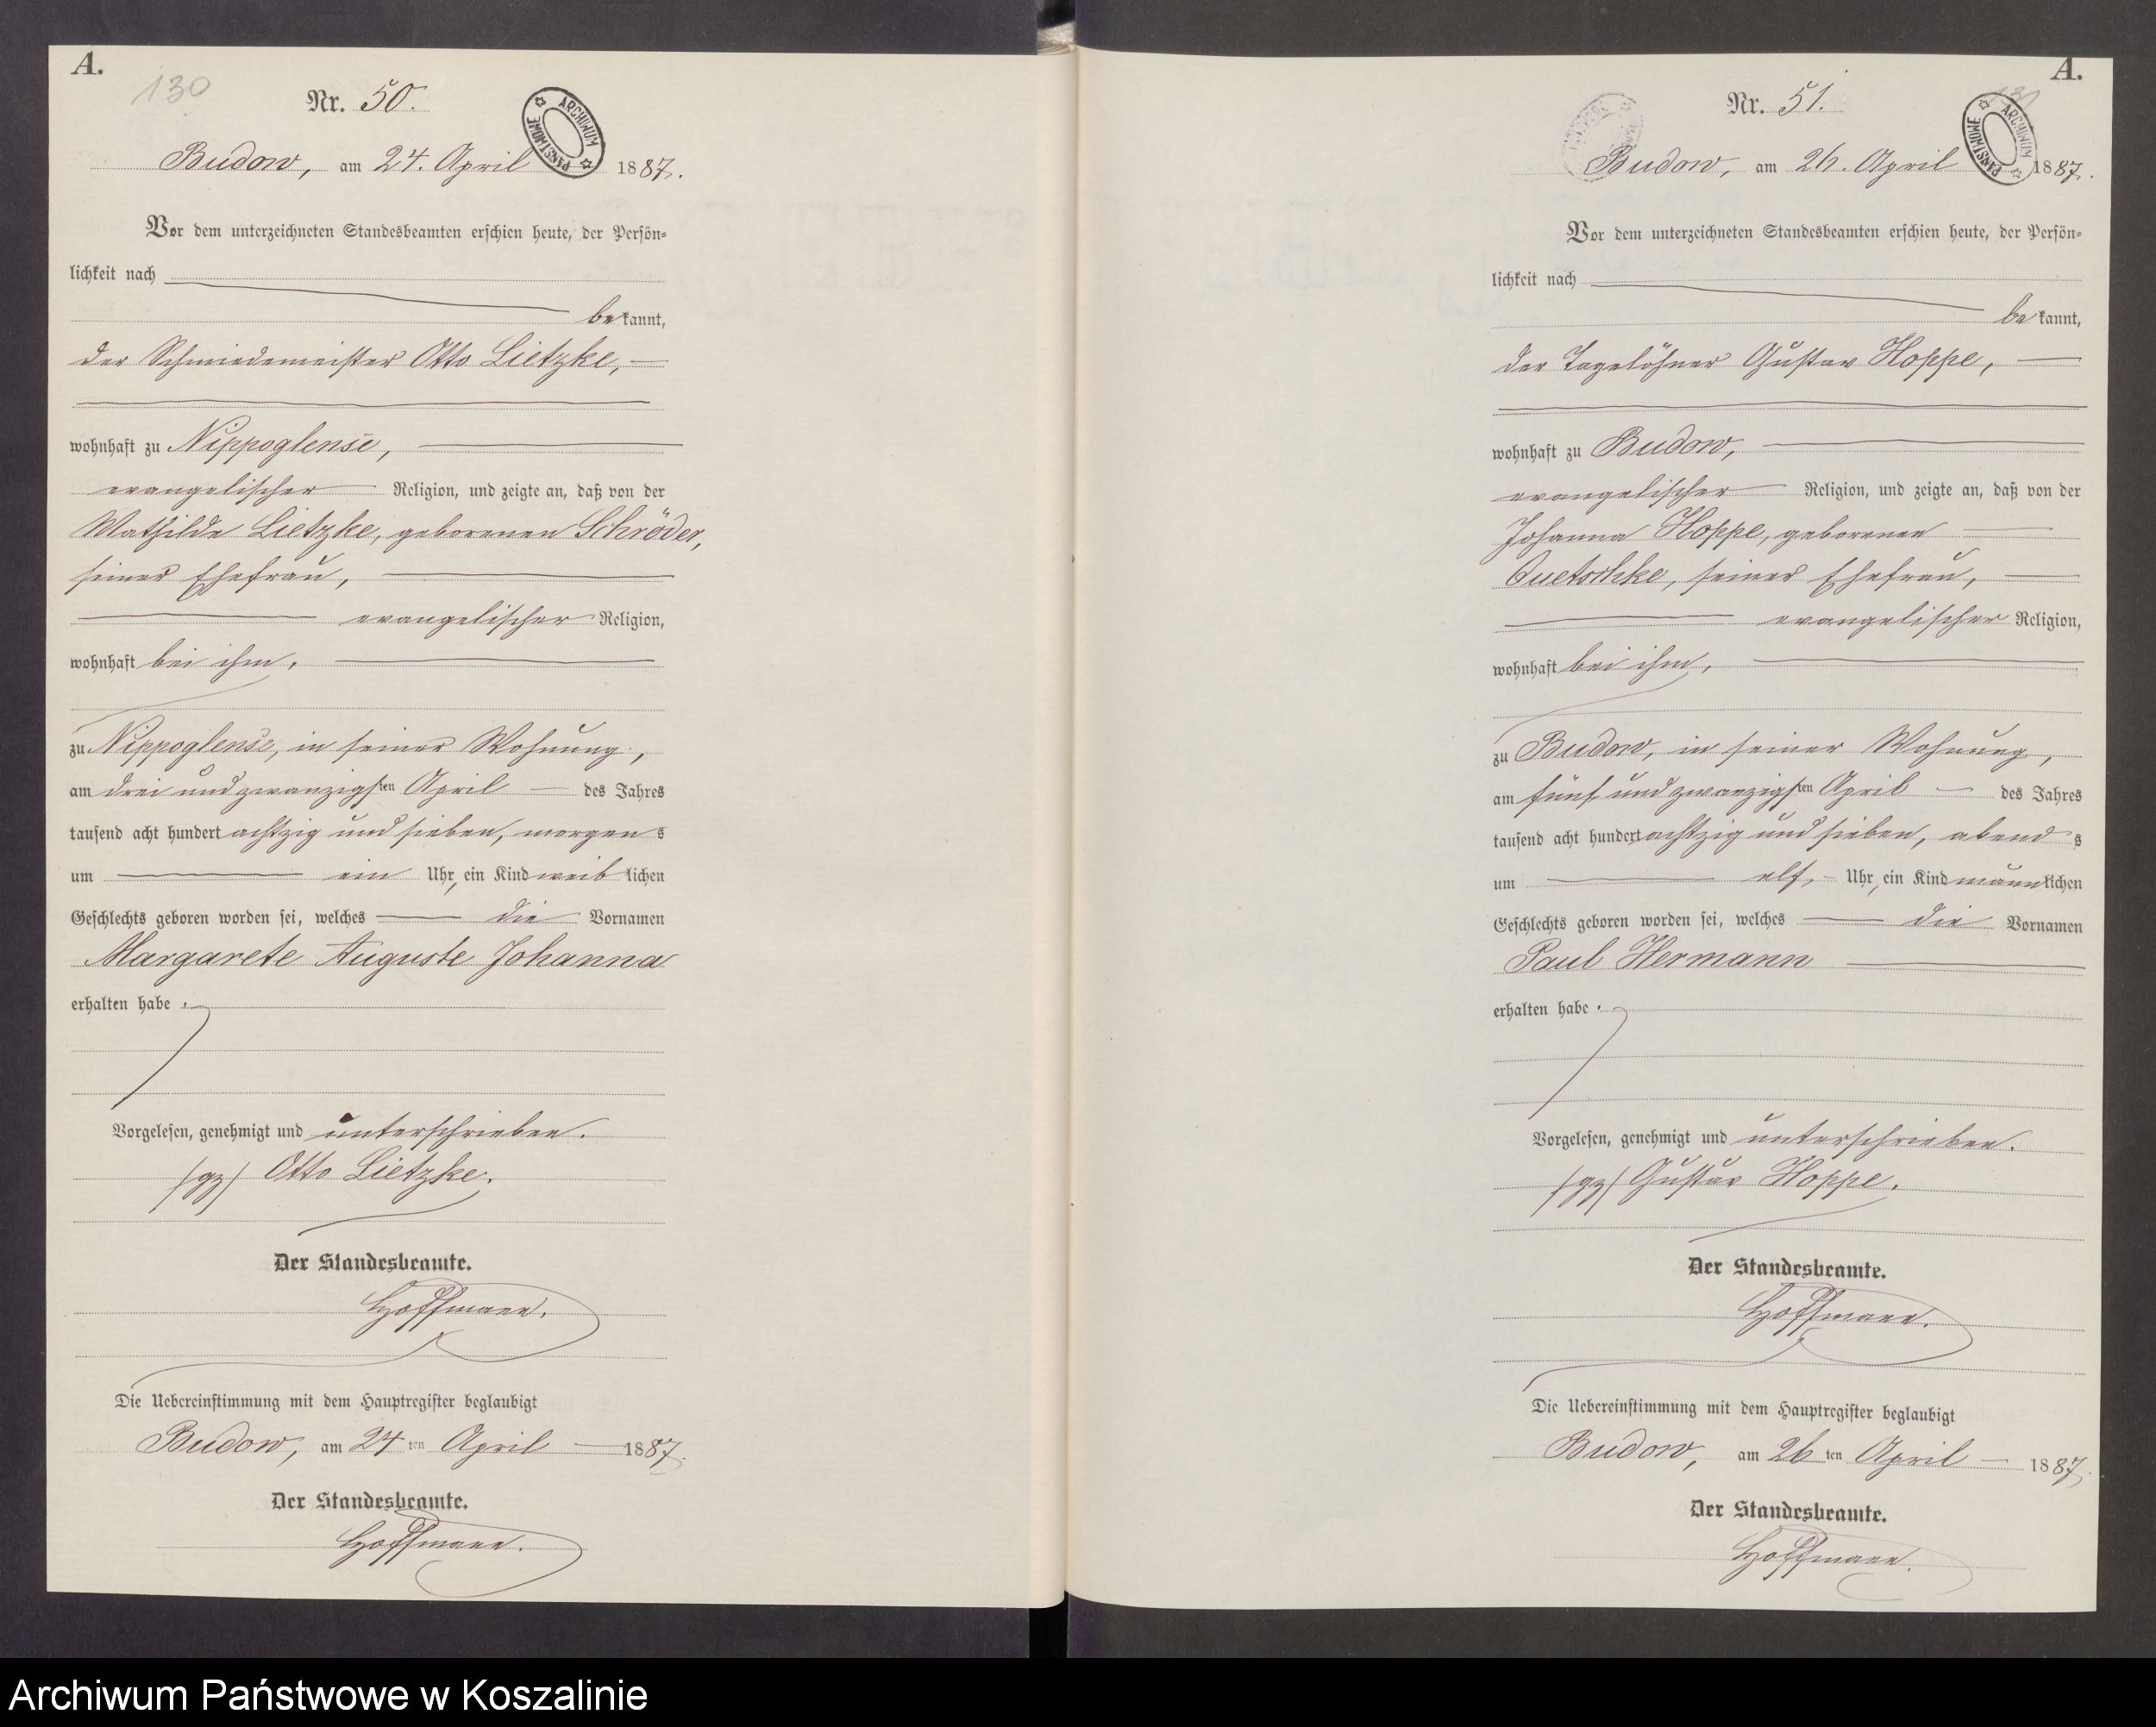 A.
130
Nr. 50.
ARCHIWUM PAŃSTWOWE
Budow, am 24. April 1887.
Vor dem unterzeichneten Standesbeamten erschien heute, der Persön-
lichkeit nach
bekannt,
der Schmiedemeister Otto Lietzke,
wohnhaft zu Nippoglense,
evangelischer Religion, und zeigte an, daß von der
Mathilde Lietzke, geborenen Schröder,
seiner Ehefrau,
evangelischer Religion,
wohnhaft bei ihm,
zu Nippoglense, in seiner Wohnung,
am drei und zwanzigsten April des Jahres
tausend acht hundert achtzig und sieben, morgens
um ein Uhr, ein Kind weiblichen
Geschlechts geboren worden sei, welches die Vornamen
Margarete Auguste Johanna
erhalten habe.
Vorgelesen, genehmigt und unterschrieben.
(gz) Otto Lietzke.
Der Standesbeamte.
Hoffmann.
Die Uebereinstimmung mit dem Hauptregister beglaubigt
Budow, am 24 ten April 1887.
Der Standesbeamte.
Hoffmann.
A.
131
Nr. 51.
ARCHIWUM PAŃSTWOWE
Budow, am 26. April 1887.
Vor dem unterzeichneten Standesbeamten erschien heute, der Persön-
lichkeit nach
bekannt,
der Tagelöhner Gustav Hoppe,
wohnhaft zu Budow,
evangelischer Religion, und zeigte an, daß von der
Johanna Hoppe, geborenen
Quetschke, seiner Ehefrau,
evangelischer Religion,
wohnhaft bei ihm,
zu Budow, in seiner Wohnung,
am fünf und zwanzigsten April des Jahres
tausend acht hundert achtzig und sieben, abends
um elf Uhr, ein Kind männlichen
Geschlechts geboren worden sei, welches die Vornamen
Paul Hermann
erhalten habe.
Vorgelesen, genehmigt und unterschrieben.
(gz) Gustav Hoppe.
Der Standesbeamte.
Hoffmann.
Die Uebereinstimmung mit dem Hauptregister beglaubigt
Budow, am 26 ten April 1887.
Der Standesbeamte.
Hoffmann.
Archiwum Państwowe w Koszalinie